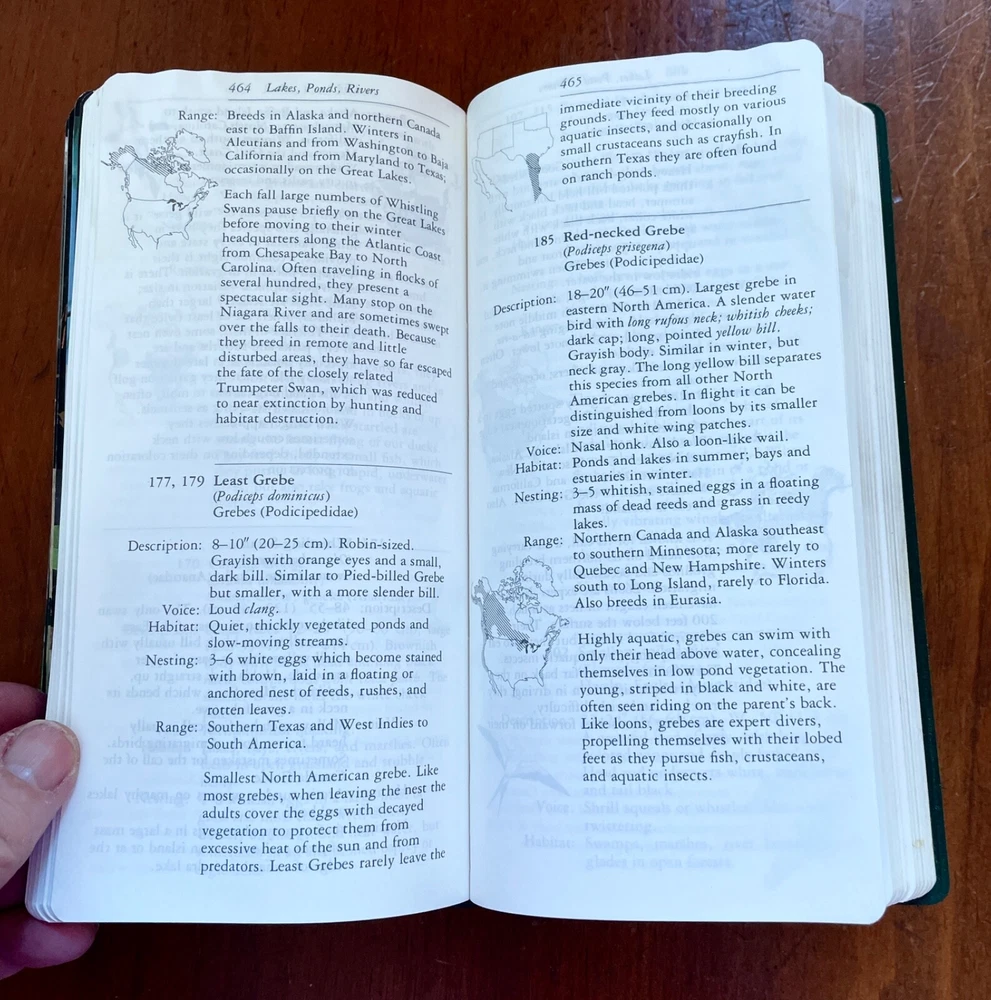 464 Lakes, Ponds, Rivers
Range: Breeds in Alaska and northern Canada
east to Baffin Island. Winters in
Aleutians and from Washington to Baja
California and from Maryland to Texas;
occasionally on the Great Lakes.
Each fall large numbers of Whistling
Swans pause briefly on the Great Lakes
before moving to their winter
headquarters along the Atlantic Coast
from Chesapeake Bay to North
Carolina. Often traveling in flocks of
several hundred, they present a
spectacular sight. Many stop on the
Niagara River and are sometimes swept
over the falls to their death. Because
they breed in remote and little
disturbed areas, they have so far escaped
the fate of the closely related
Trumpeter Swan, which was reduced
to near extinction by hunting and
habitat destruction.
177, 179 Least Grebe
(Podiceps dominicus)
Grebes (Podicipedidae)
Description: 8–10″ (20–25 cm). Robin-sized.
Grayish with orange eyes and a small,
dark bill. Similar to Pied-billed Grebe
but smaller, with a more slender bill.
Voice: Loud clang.
Habitat: Quiet, thickly vegetated ponds and
slow-moving streams.
Nesting: 3–6 white eggs which become stained
with brown, laid in a floating or
anchored nest of reeds, rushes, and
rotten leaves.
Range: Southern Texas and West Indies to
South America.
Smallest North American grebe. Like
most grebes, when leaving the nest the
adults cover the eggs with decayed
vegetation to protect them from
excessive heat of the sun and from
predators. Least Grebes rarely leave the
465
immediate vicinity of their breeding
grounds. They feed mostly on various
aquatic insects, and occasionally on
small crustaceans such as crayfish. In
southern Texas they are often found
on ranch ponds.
185 Red-necked Grebe
(Podiceps grisegena)
Grebes (Podicipedidae)
Description: 18–20″ (46–51 cm). Largest grebe in
eastern North America. A slender water
bird with long rufous neck; whitish cheeks;
dark cap; long, pointed yellow bill.
Grayish body. Similar in winter, but
neck gray. The long yellow bill separates
this species from all other North
American grebes. In flight it can be
distinguished from loons by its smaller
size and white wing patches.
Voice: Nasal honk. Also a loon-like wail.
Habitat: Ponds and lakes in summer; bays and
estuaries in winter.
Nesting: 3–5 whitish, stained eggs in a floating
mass of dead reeds and grass in reedy
lakes.
Range: Northern Canada and Alaska southeast
to southern Minnesota; more rarely to
Quebec and New Hampshire. Winters
south to Long Island, rarely to Florida.
Also breeds in Eurasia.
Highly aquatic, grebes can swim with
only their head above water, concealing
themselves in low pond vegetation. The
young, striped in black and white, are
often seen riding on the parent's back.
Like loons, grebes are expert divers,
propelling themselves with their lobed
feet as they pursue fish, crustaceans,
and aquatic insects.